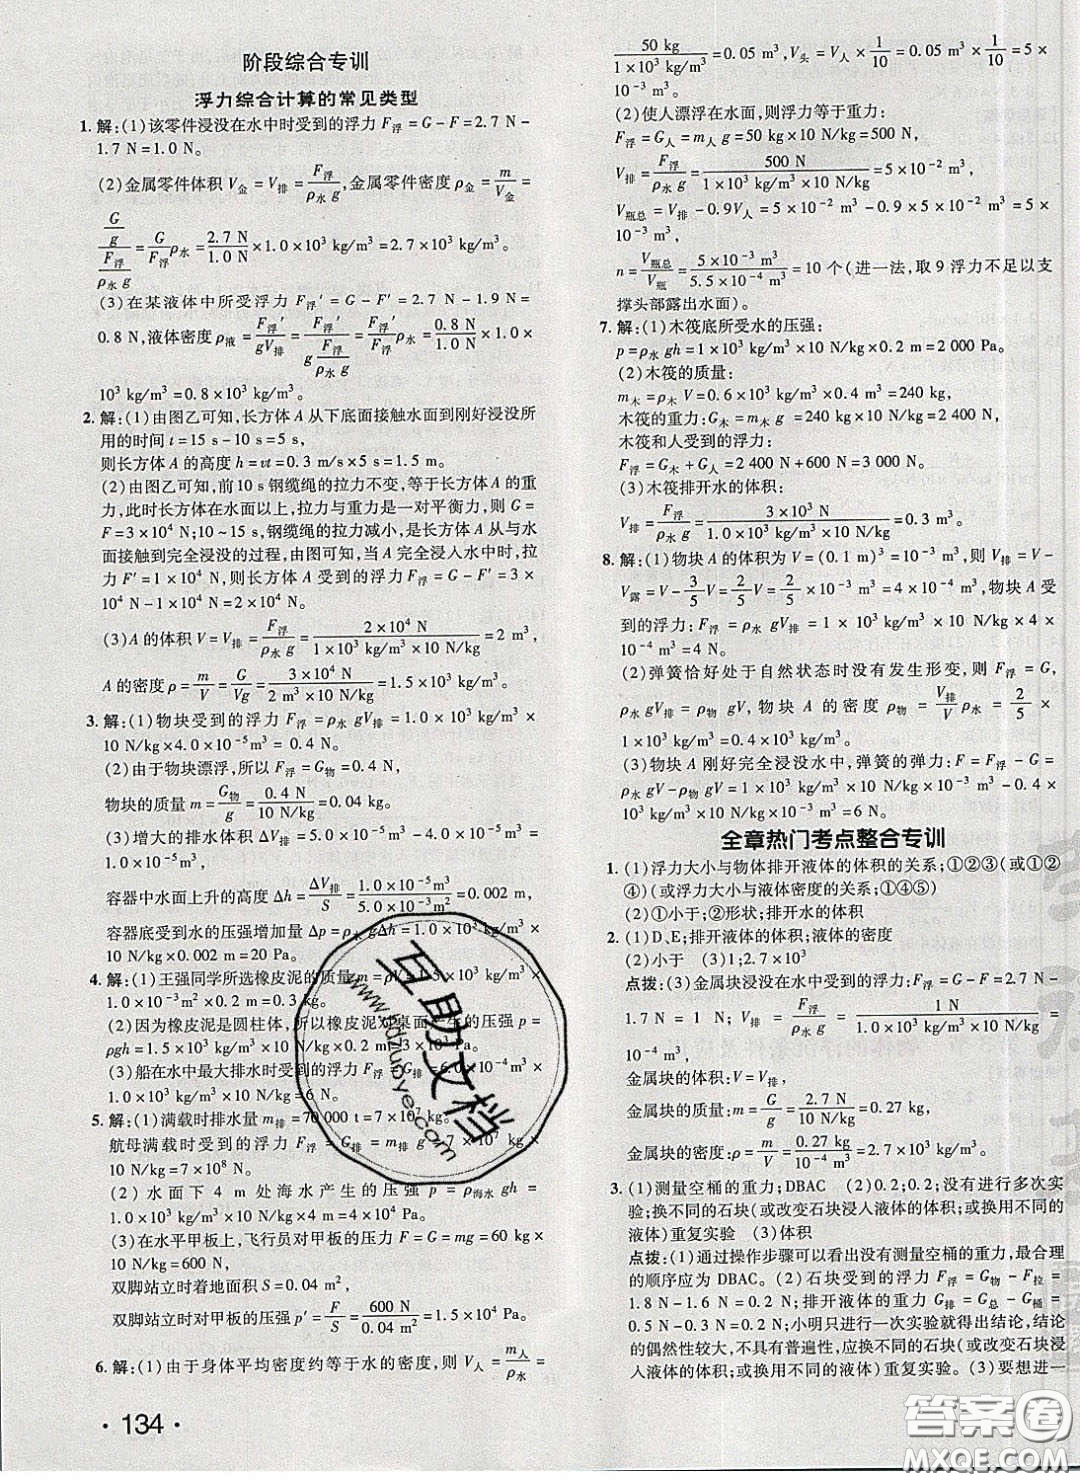 阶段综合专训
浮力综合计算的常见类型
1. 解:(1)该零件浸没在水中时受到的浮力 F浮=G-F=2.7 N-
1.7 N=1.0 N。
(2)金属零件体积 V金=V排=F浮/(ρ水 g),金属零件密度 ρ金=m/V金=
(G/g)/(F浮/(ρ水 g))=G/F浮 ρ水=2.7 N/1.0 N×1.0×10³ kg/m³=2.7×10³ kg/m³。
(3)在某液体中所受浮力 F浮′=G-F′=2.7 N-1.9 N=
0.8 N,液体密度 ρ液=F浮′/(gV排)=F浮′/(g F浮/(ρ水 g))=F浮′/F浮 ρ水=0.8 N/1.0 N×1.0×
10³ kg/m³=0.8×10³ kg/m³。
2. 解:(1)由图乙可知,长方体 A 从下底面接触水面到刚好浸没所
用的时间 t=15 s-10 s=5 s,
则长方体 A 的高度 h=vt=0.3 m/s×5 s=1.5 m。
(2)由图乙可知,前10 s钢缆绳的拉力不变,等于长方体 A 的重
力,此时长方体在水面以上,拉力与重力是一对平衡力,则 G=
F=3×10⁴ N;10~15 s,钢缆绳的拉力减小,是长方体 A 从与水
面接触到完全浸没的过程,由图可知,当 A 完全浸入水中时,拉
力 F′=1×10⁴ N,则长方体 A 受到的浮力 F浮=G-F′=3×
10⁴ N-1×10⁴ N=2×10⁴ N。
(3)A 的体积 V=V排=F浮/(ρ水 g)=2×10⁴ N/(1×10³ kg/m³×10 N/kg)=2 m³,
A 的密度 ρ=m/V=G/Vg=3×10⁴ N/(2 m³×10 N/kg)=1.5×10³ kg/m³。
3. 解:(1)物块受到的浮力 F浮=ρ水 gV排=1.0×10³ kg/m³×
10 N/kg×4.0×10⁻⁵ m³=0.4 N。
(2)由于物块漂浮,所以 F浮=G物=0.4 N,
物块的质量 m=G物/g=0.4 N/(10 N/kg)=0.04 kg。
(3)增大的排水体积 ΔV排=5.0×10⁻⁵ m³-4.0×10⁻⁵ m³=
1.0×10⁻⁵ m³,
容器中水面上升的高度 Δh=ΔV排/S=1.0×10⁻⁵ m³/(5.0×10⁻³ m²)=0.002 m,
容器底受到水的压强增加量 Δp=ρ水 gΔh=1.0×10³ kg/m³×
10 N/kg×0.002 m=20 Pa。
4. 解:(1)王强同学所选橡皮泥的质量 m=ρV=1.5×10³ kg/m³×
1.0×10⁻³ m²×0.2 m=0.3 kg。
(2)因为橡皮泥是圆柱体,所以橡皮泥对桌面产生的压强 p=
ρgh=1.5×10³ kg/m³×10 N/kg×0.2 m=3×10³ Pa。
(3)船在水中最大排水时受到的浮力 F浮=ρ水 gV排=1.0×
10³ kg/m³×10 N/kg×6×10⁻⁴ m³=6 N。
5. 解:(1)满载时排水量 m排=70 000 t=7×10⁷ kg,
航母满载时受到的浮力 F浮=G排=m排 g=7×10⁷ kg×
10 N/kg=7×10⁸ N。
(2)水面下 4 m 处海水产生的压强 p=ρ海水 gh=
1.0×10³ kg/m³×10 N/kg×4 m=4×10⁴ Pa。
(3)在水平甲板上,飞行员对甲板的压力 F=G=mg=60 kg×
10 N/kg=600 N,
双脚站立时着地面积 S=0.04 m²,
双脚站立时对甲板的压强 p′=F/S=600 N/0.04 m²=1.5×10⁴ Pa。
6. 解:(1)由于身体平均密度约等于水的密度,则 V人=m人/ρ水=
· 134 ·
50 kg/(1×10³ kg/m³)=0.05 m³,V头=V人×1/10=0.05 m³×1/10=5×
10⁻³ m³。
(2)使人漂浮在水面,浮力等于重力:
F浮=G人=m人 g=50 kg×10 N/kg=500 N,
V排=F浮/(ρ水 g)=500 N/(1×10³ kg/m³×10 N/kg)=5×10⁻² m³,
V瓶总=V排-0.9V人=5×10⁻² m³-0.9×5×10⁻² m³=5×
10⁻³ m³,
n=V瓶总/V瓶=5×10⁻³ m³/(5.5×10⁻⁴ m³)=10 个(进一法,取 9 浮力不足以支
撑头部露出水面)。
7. 解:(1)木筏底所受水的压强:
p=ρ水 gh=1×10³ kg/m³×10 N/kg×0.2 m=2 000 Pa。
(2)木筏的质量:
m木=ρ木 V=0.6×10³ kg/m³×2 m²×0.2 m=240 kg,
木筏的重力:G木=m木 g=240 kg×10 N/kg=2 400 N,
木筏和人受到的浮力:
F浮=G木+G人=2 400 N+600 N=3 000 N。
(3)木筏排开水的体积:
V排=F浮/(ρ水 g)=3×10³ N/(1×10³ kg/m³×10 N/kg)=0.3 m³。
8. 解:(1)物块 A 的体积为 V=(0.1 m)³=10⁻³ m³,则 V排=V-
V露=V-3/5V=2/5V=2/5×10⁻³ m³=4×10⁻⁴ m³,物块 A 受
到的浮力:F浮=ρ水 gV排=1×10³ kg/m³×10 N/kg×4×
10⁻⁴ m³=4 N。
(2)弹簧恰好处于自然状态时没有发生形变,则 F浮=G,
ρ水 gV排=ρ物 gV,物块 A 的密度 ρ物=V排/V ρ水=2/5×
1×10³ kg/m³=0.4×10³ kg/m³。
(3)物块 A 刚好完全浸没水中时,弹簧的弹力:F=F浮-G=
ρ水 gV-ρ物 gV=1×10³ kg/m³×10 N/kg×10⁻³ m³-0.4×
10³ kg/m³×10 N/kg×10⁻³ m³=6 N。
全章热门考点整合专训
1. (1)浮力大小与物体排开液体的体积的关系;①②③(或①②
④)(或浮力大小与液体密度的关系;①④⑤)
(2)①小于;②形状;排开水的体积
2. (1)D、E;排开液体的体积;液体的密度
(2)小于 (3)1;2.7×10³
点拨:(3)金属块浸没在水中受到的浮力:F浮=G-F=2.7 N-
1.7 N=1 N;V排=F浮/(ρ水 g)=1 N/(1.0×10³ kg/m³×10 N/kg)=
1.0×10⁻⁴ m³
金属块的体积:V=V排,
金属块的质量:m=G/g=2.7 N/(10 N/kg)=0.27 kg,
金属块的密度:ρ=m/V=0.27 kg/(10⁻⁴ m³)=2.7×10³ kg/m³。
3. (1)测量空桶的重力;DBAC (2)0.2;0.2;没有进行多次实
验;换不同的石块(或改变石块浸入液体的体积;或换用不同的
液体)重复实验 (3)体积
点拨:(1)通过操作步骤可以看出没有测量空桶的重力,最合理
的顺序应为 DBAC。(2)石块受到的浮力 F浮=G物-F拉=
1.8 N-1.6 N=0.2 N;排开液体的重力 G排=G总-G桶=
0.5 N-0.3 N=0.2 N;小明只进行一次实验就得出结论,结论
的偶然性较大,不具有普遍性,应换不同的石块(或改变石块浸
入液体的体积;或换用不同的液体)重复实验。(3)要想进一
互助文档
www.hdzuoye.com
答案圈
MXQE.COM